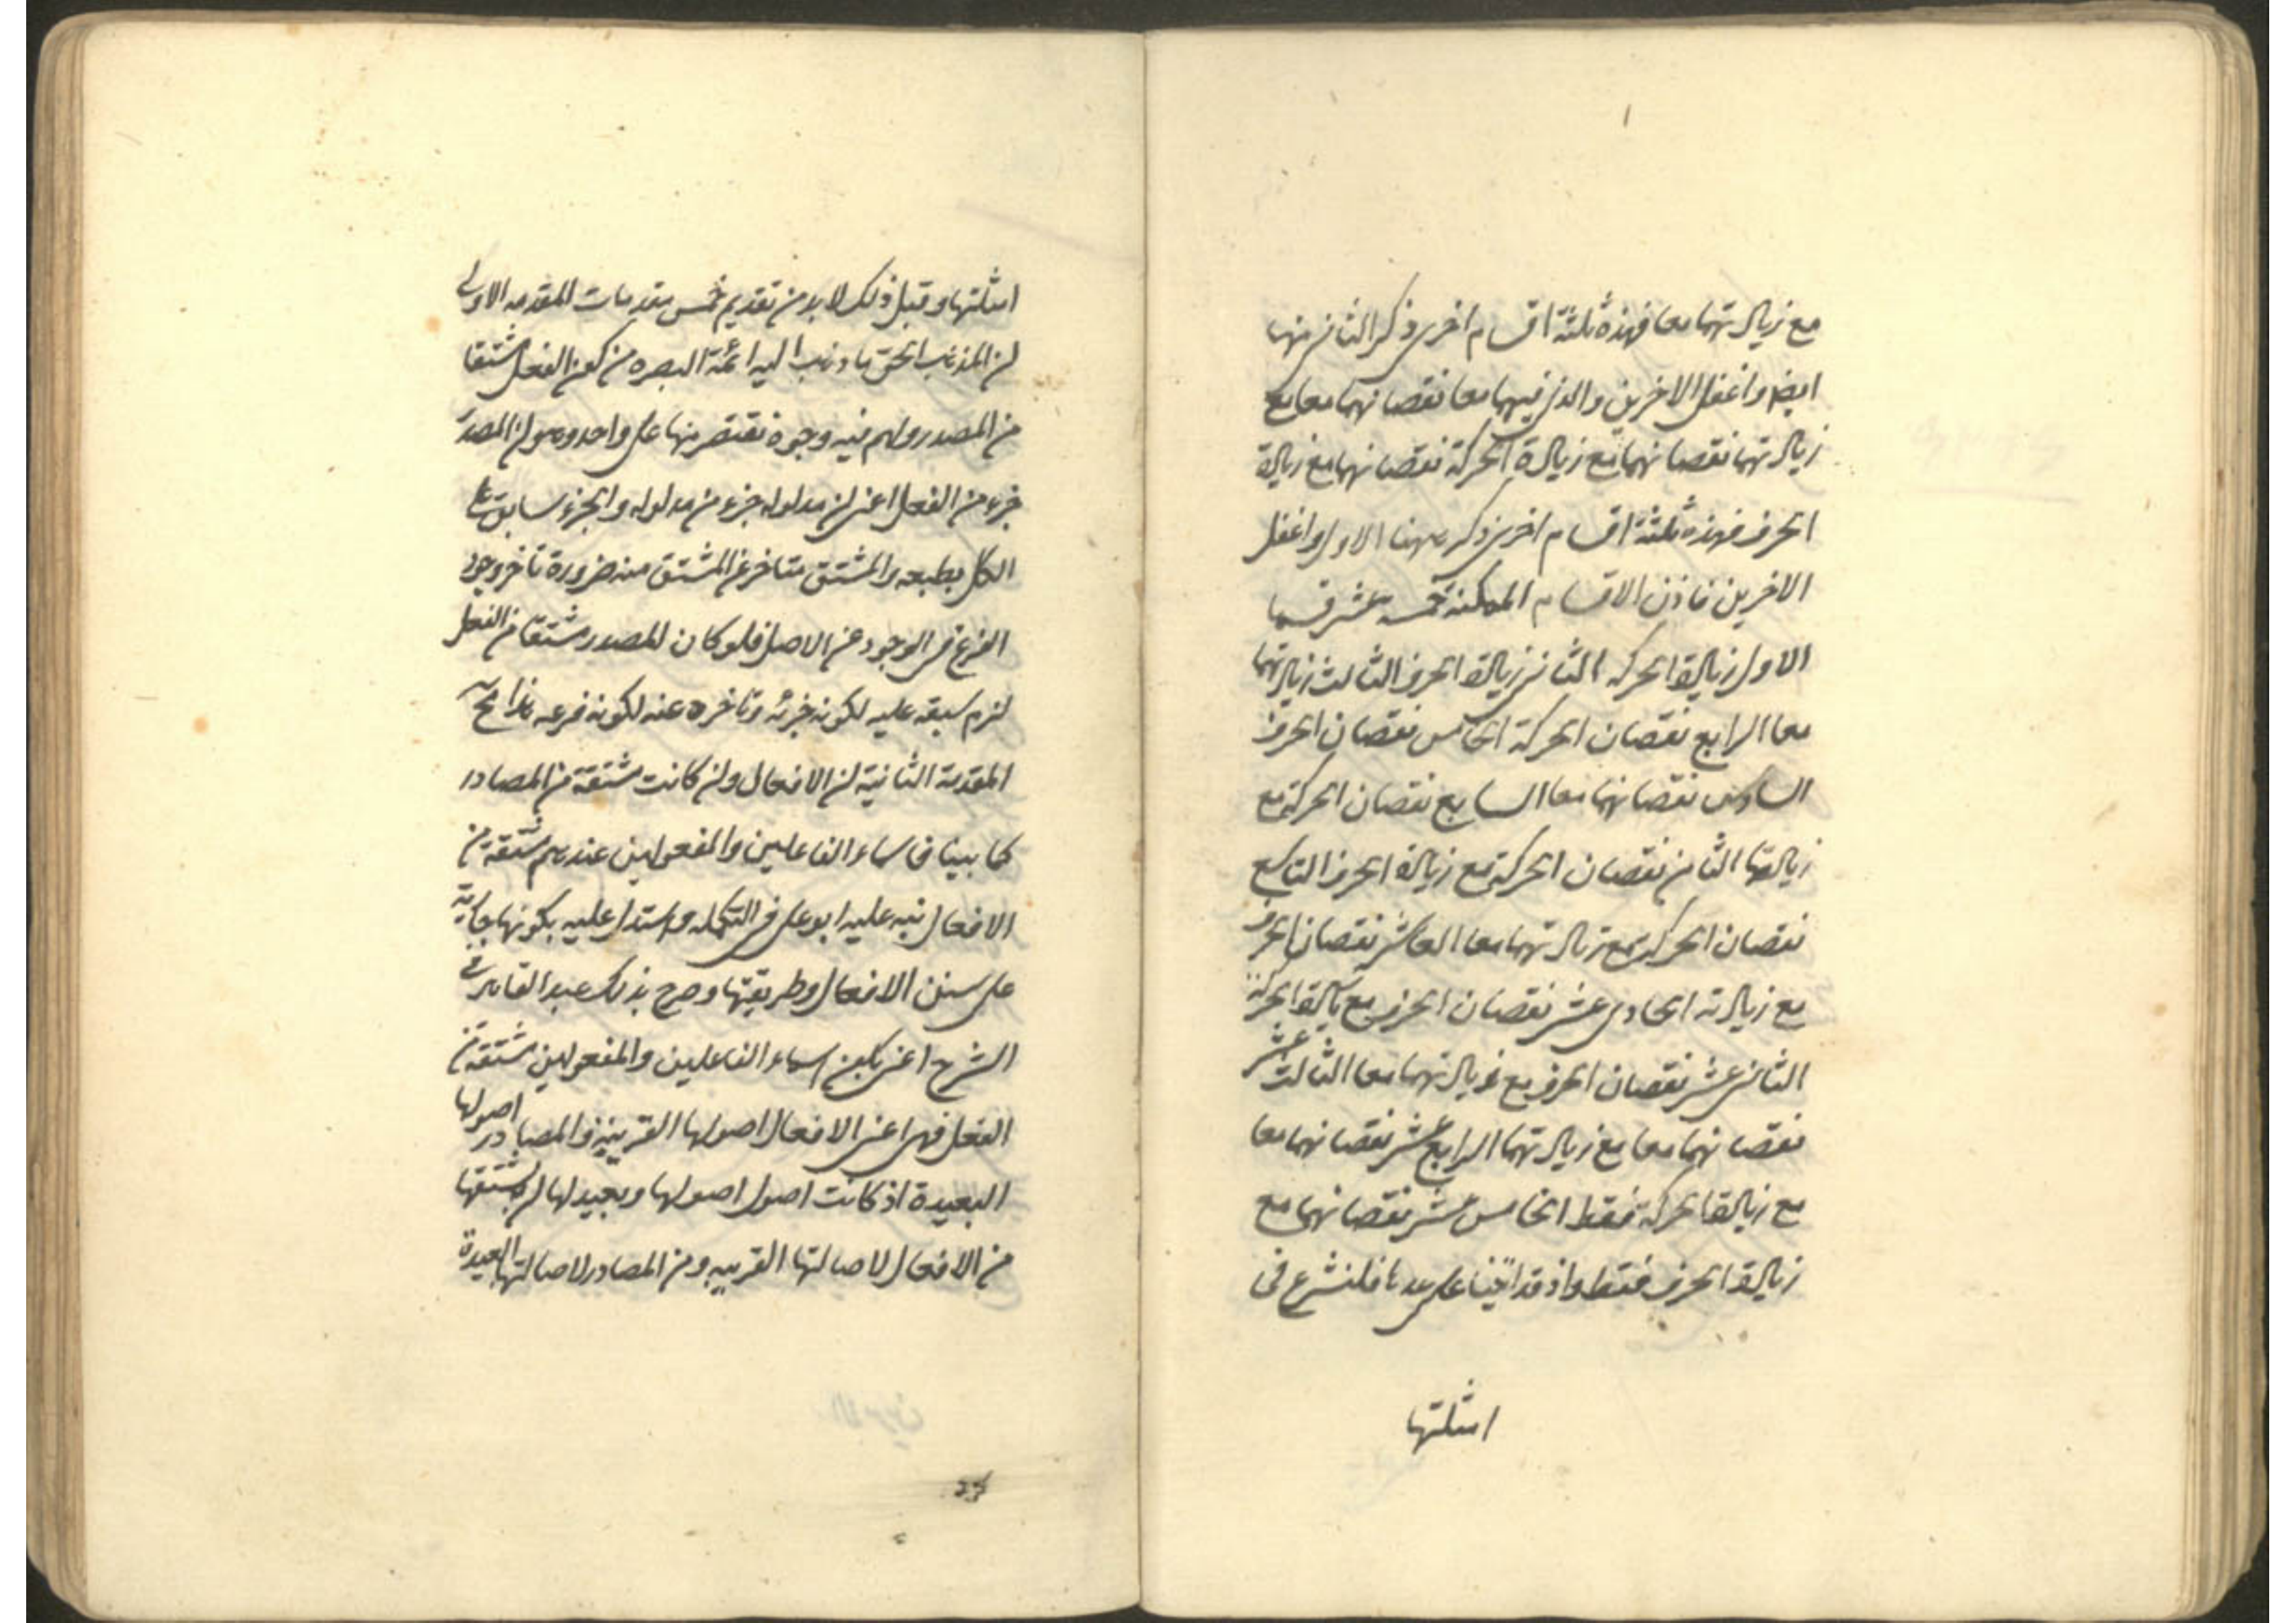 مع زيادتهما معا فهذه ثلثة اقسام اخرى ذكر الثانى منها
ايضا واغفل الاخرين والذى فيهما معا نقصانهما معا مع
زيادتهما نقصانهما مع زيادة الحركة نقصانهما مع زيادة
الحرف فهذه ثلثة اقسام اخرى ذكر ههنا الاول واغفل
الاخرين فاذن الاقسام الممكنة خمسه عشر قسما
الاول زيادة الحركه الثانى زيادة الحرف الثالث زيادتهما
معا الرابع نقصان الحركة الخامس نقصان الحرف
السادس نقصانهما معا السابع نقصان الحركة مع
زيادتها الثامن نقصان الحركة مع زيادة الحرف التاسع
نقصان الحركة مع زيادتهما معا العاشر نقصان الحرف
مع زيادته الحادى عشر نقصان الحرف مع زيادة الحركة
الثانى عشر نقصان الحرف مع زيادتهما معا الثالث عشر
نقصانهما معا مع زيادتهما الرابع عشر نقصانهما معا
مع زيادة الحركة فقط الخامس عشر نقصانهما مع
زيادة الحرف فقط واذ قد اتينا على عدها فلنشرع فى
امثلتها
امثلتها وقبل ذلك لا بد من تقديم خمس مقدمات المقدمه الاولى
ان المذهب الحق ما ذهب اليه ائمة البصره من كون الفعل مشتقا
من المصدر ولهم فيه وجوه نقتصر منها على واحد وهو ان المصدر
جزء من الفعل اعنى ان مدلوله جزء من مدلوله والجزء سابق على
الكل بطبعه والمشتق متاخر عن المشتق منه ضرورة تاخر وجود
الفرع فى الوجود عن الاصل فلو كان المصدر مشتقا من الفعل
لزم سبقه عليه لكونه جزئه وتاخره عنه لكونه فرعه هذا مح
المقدمة الثانية ان الافعال وان كانت مشتقة من المصادر
كما بينا فاسماء الفاعلين والمفعولين عندهم مشتقة من
الافعال نبه عليه ابو على فى التكمله واستدل عليه بكونها جارية
على سنن الافعال وطريقتها وصرح بذلك عبد القاهر فى
الشرح اعنى بكون اسماء الفاعلين والمفعولين مشتقة من
الفعل فهى اعنى الافعال اصولها القريبة والمصادر اصولها
البعيدة اذ كانت اصول اصولها
من الافعال لاصالتها القريبه ومن المصادر لاصالتها البعيدة